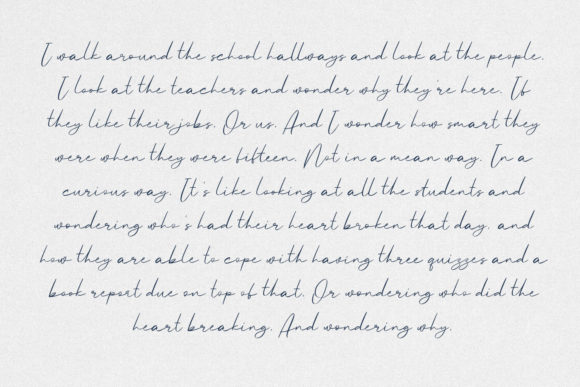 I walk around the school hallways and look at the people.
I look at the teachers and wonder why they're here. If
they like their jobs. Or us. And I wonder how smart they
were when they were fifteen. Not in a mean way. In a
curious way. It's like looking at all the students and
wondering who's had their heart broken that day, and
how they are able to cope with having three quizzes and a
book report due on top of that. Or wondering who did the
heart breaking. And wondering why.